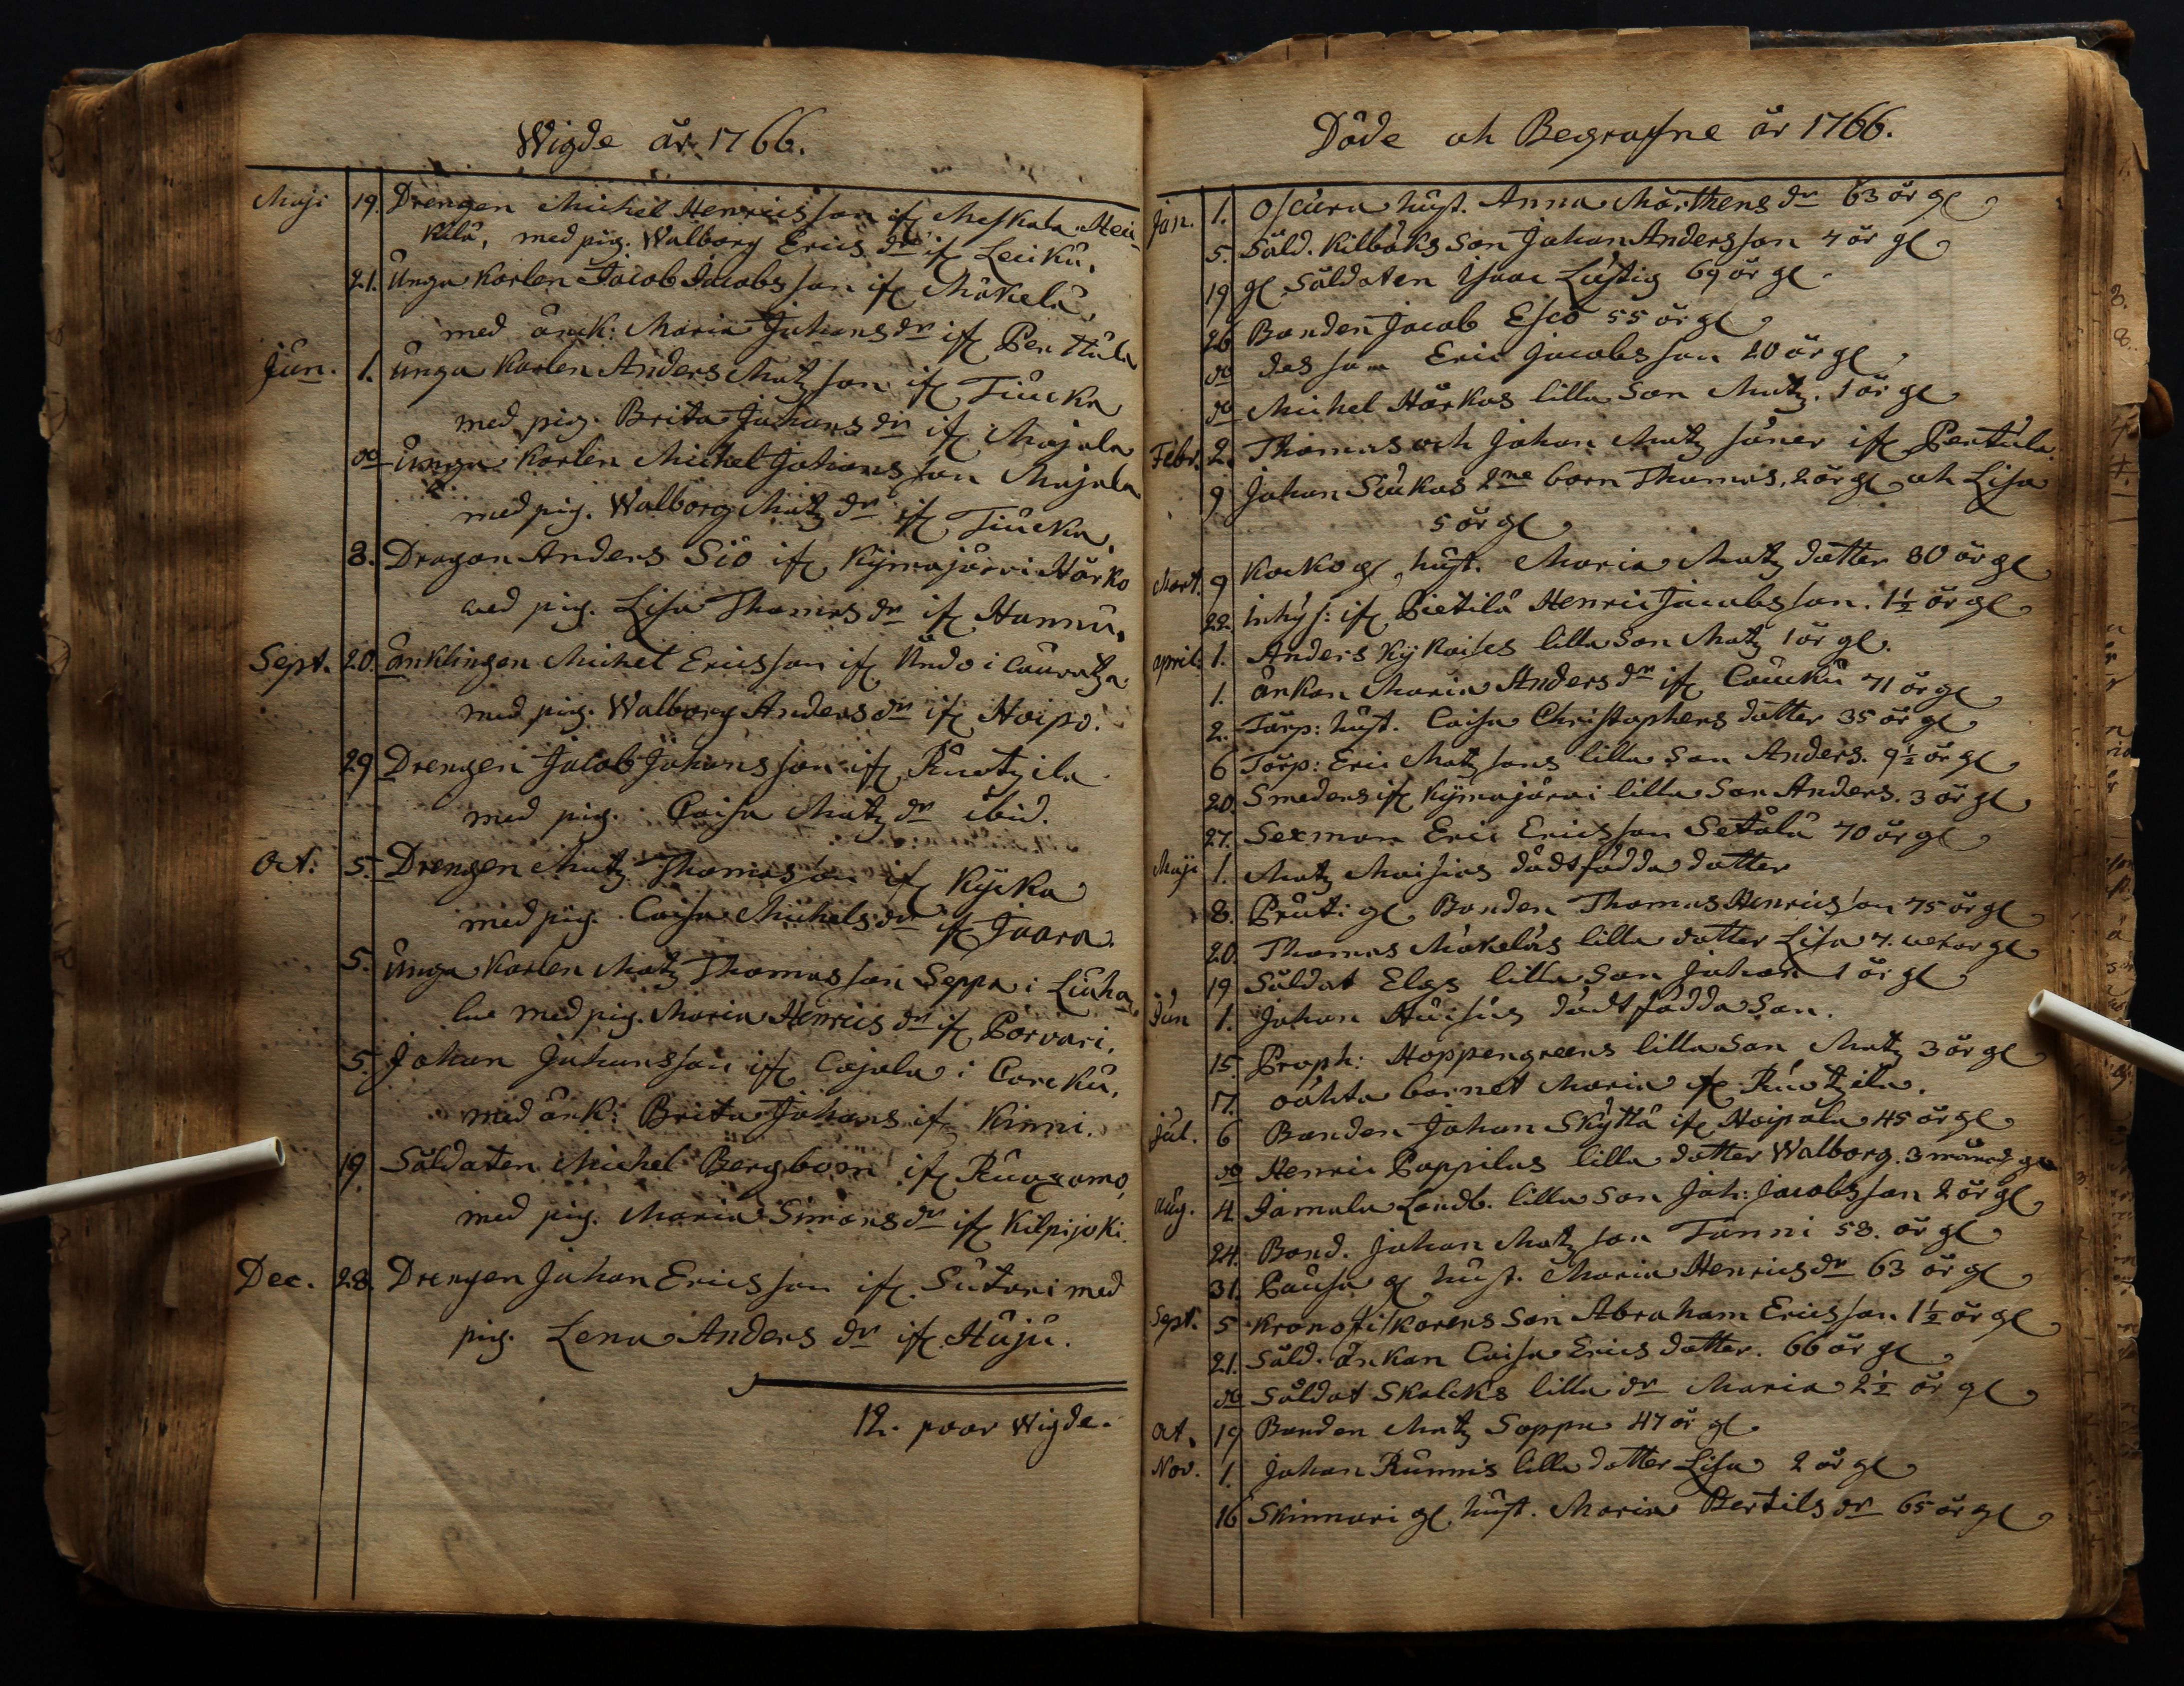 Wigde år 1766.
Maji 19. Drengen Michel Henricsson ifr Meskala Hei
kilä, med pig. Walborg Erics dr ifr Leicku.
21. Unga Karlen Jacob Jacobsson ifr Mäkelä,
med änck: Maria Johans dr ifr Penttula
Jun. 1. Unga Karlen Anders Matzson ifr Tiucka
med pig. Brita Johans dr ifr Majala
do Unga Karlen Michel Johansson Majala
med pig. Walborg Matz dr ifr Tiucka.
8. Dragon Anders Siö ifr Kymajärvi Härko
med pig. Lisa Thomas dr ifr Hannu.
Sept. 20. Änklingen Michel Ericsson ifr Undo i Cauratza
med pig. Walborg Anders dr ifr Hoipo.
29 Drengen Jacob Johansson ifr Ruatzila
med pig. Caisa Matz dr ibid.
Oct: 5. Drengen Matz Thomasson ifr Kycka
med pig. Caisa Michels dr ifr Jaara.
5. Unga Karlen Matz Thomasson Seppa i Liuha
la med pig. Maria Henrics dr ifr Porvari.
5. Johan Johansson ifr Cajala i Carcku,
med änk: Brita Johans ifr Kinni.
19 Soldaten Michel Bergboon ifr Ruaxamo,
med pig. Maria Simons dr ifr Kilpijoki.
Dec. 28. Drengen Johan Ericsson ifr Sutari med
pig. Lena Anders dr ifr Huju.
12. paar Wigde.
Döde och Begrafne år 1766.
Jan. 1. Oscura hust. Anna Mårthens dr 63 år gl
5. Sold. Kilbåks Son Johan Andersson 4 år gl
19 gl Soldaten Isaac Lustig 69 år gl
26 Bonden Jacob Esco 55 år gl
do des son Eric Jacobsson 20 år gl
do Michel Härkas lilla Son Matz. 1 år gl
Febr. 2. Thomas och Johan Matz söner ifr Pentula.
9 Johan Siukas 2ne barn Thomas, 2 år gl och Lisa
5 år gl
Mart. 9 Kocko gl hust. Maria Matz dotter 80 år gl
22. Inhys: ifr Pietilä Henric Jacobsson. 1½ år gl
april. 1. Anders Kykoises lilla Son Matz 1 år gl.
1. änkan Maria Anders dr ifr Caucku 71 år gl
2. Torp: hust. Caisa Christophers dotter 35 år gl
6 Torp: Eric Matzsons lilla Son Anders. 9½ år gl
20. Smedens ifr Kymajärvi lilla Son Anders. 3 år gl
27. Sexman Eric Ericsson Setälä 70 år gl
Maji 1. Matz Maisias dödfödda dotter
8. Pruti gl Bonden Thomas Henricsson 75 år gl
20. Thomas Mäkeläs lilla dotter Lisa 7. vekor gl
19 Soldat Elgs lilla Son Johan 1 år gl
Jun 1. Johan Huisius dödfödda Son.
15. Proph: Hoppengreens lilla Son Matz 3 år gl
17. oächta barnet Maria ifr Ruatzila.
Jul. 6 Bonden Johan Skyttä ifr Hoipala 45 år gl
do Henric Pappilas lilla dotter Walborg. 3 månad gl
aug. 4 Jamala Landb. lilla Son Joh: Jacobsson 2 år gl
24. Bond. Johan Matzson Tanni 58. år gl
31. Pausa gl hust. Maria Henrics dr 63 år gl
Sept. 5 Kronofiskarens Son Abraham Ericsson 1½ år gl
21. Sold. änkan Caisa Erics dotter. 66 år gl
do Soldat Skalcks lilla dr Maria 2½ år gl
Oct. 19 Bonden Matz Soppa 47 år gl
Nov. 1. Johan Runnis lilla dotter Lisa 2 år gl
16 Skinnari gl hust. Maria Bertils dr 65 år gl